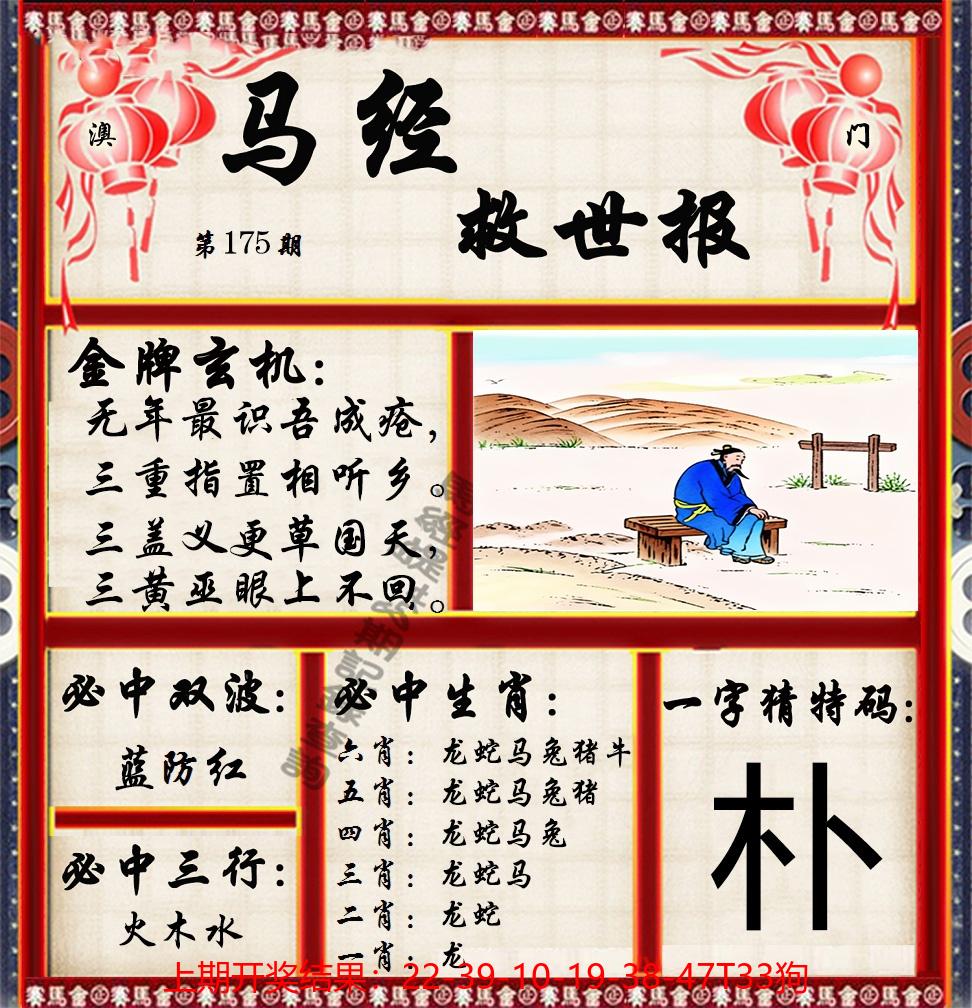 澳
门
马经
救世报
第175期
金牌玄机：
无年最识吾成疮，
三重指置相听乡。
三盖义更草国天，
三黄巫眼上不回。
必中双波：
蓝防红
必中三行：
火木水
必中生肖：
六肖：龙蛇马兔猪牛
五肖：龙蛇马兔猪
四肖：龙蛇马兔
三肖：龙蛇马
二肖：龙蛇
一肖：龙
一字猜特码：
朴
上期开奖结果：22-39-10-19-38-47T33狗